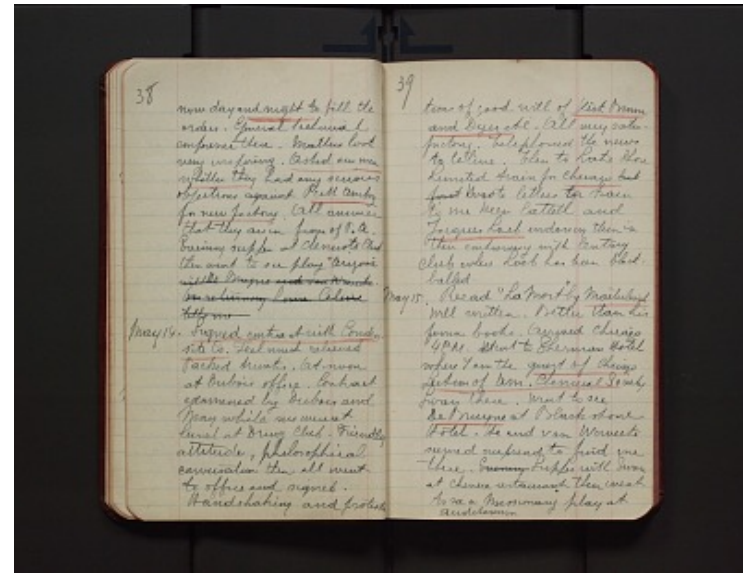 38
now day and night to fill the
orders. General technical
conference there. Matters look
very inspiring. Asked our men
whether they had any serious
objections against Perth Amboy
for new factory. All answer
that they are in favor of P.A.
Evening supper at Chemists Club
then went to see play "Arizona"
and van
On returning home Celine
tells me
May 14. Signed contract with Conden-
site Co. Feel much relieved
Packed trunks. At noon
at Dubois office. Contract
examined by Dubois and
May while we went
lunch at Drug Club. Friendly
attitude, philosophical
conversation then all went
to office and signed.
Handshaking and protesta-
39
tions of good will of Kirk Brown
and Dyer etc. All very satis-
factory. Telephoned the news
to Celine. Then to Lake Shore
Limited train for Chicago but
first wrote letters for train
to me and
Loeb endorsing them &
their controversy with Century
Club where Loeb has been black-
balled
May 15. Read "La Mort" by Maeterlinck
well written. Better than his
former books. Arrived Chicago
4 P.M. Went to Sherman Hotel
where I am the guest of Chicago
section of Am. Chemical Society
Swan there. Went to see
De Bruyne at Blackstone
Hotel. He and van
seemed surprised to find me
there. Evening Supper with Swan
at Chinese restaurant then went
to see a Missionary play at
auditorium